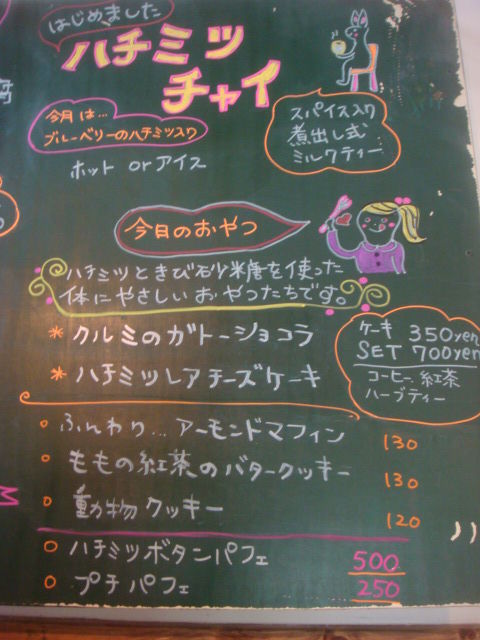 はじめました
ハチミツ
チャイ
今月は...
ブルーベリーのハチミツ入り
スパイス入り
煮出し式
ミルクティー
ホット or アイス
今日のおやつ
ハチミツときび砂糖を使った
体にやさしいおやつたちです。
* クルミのガトーショコラ
* ハチミツレアチーズケーキ
ケーキ 350yen
SET 700yen
コーヒー 紅茶
ハーブティー
ふんわり... アーモンドマフィン 130
ももの紅茶のバタークッキー 130
動物クッキー 120
ハチミツボタンパフェ 500
プチパフェ 250